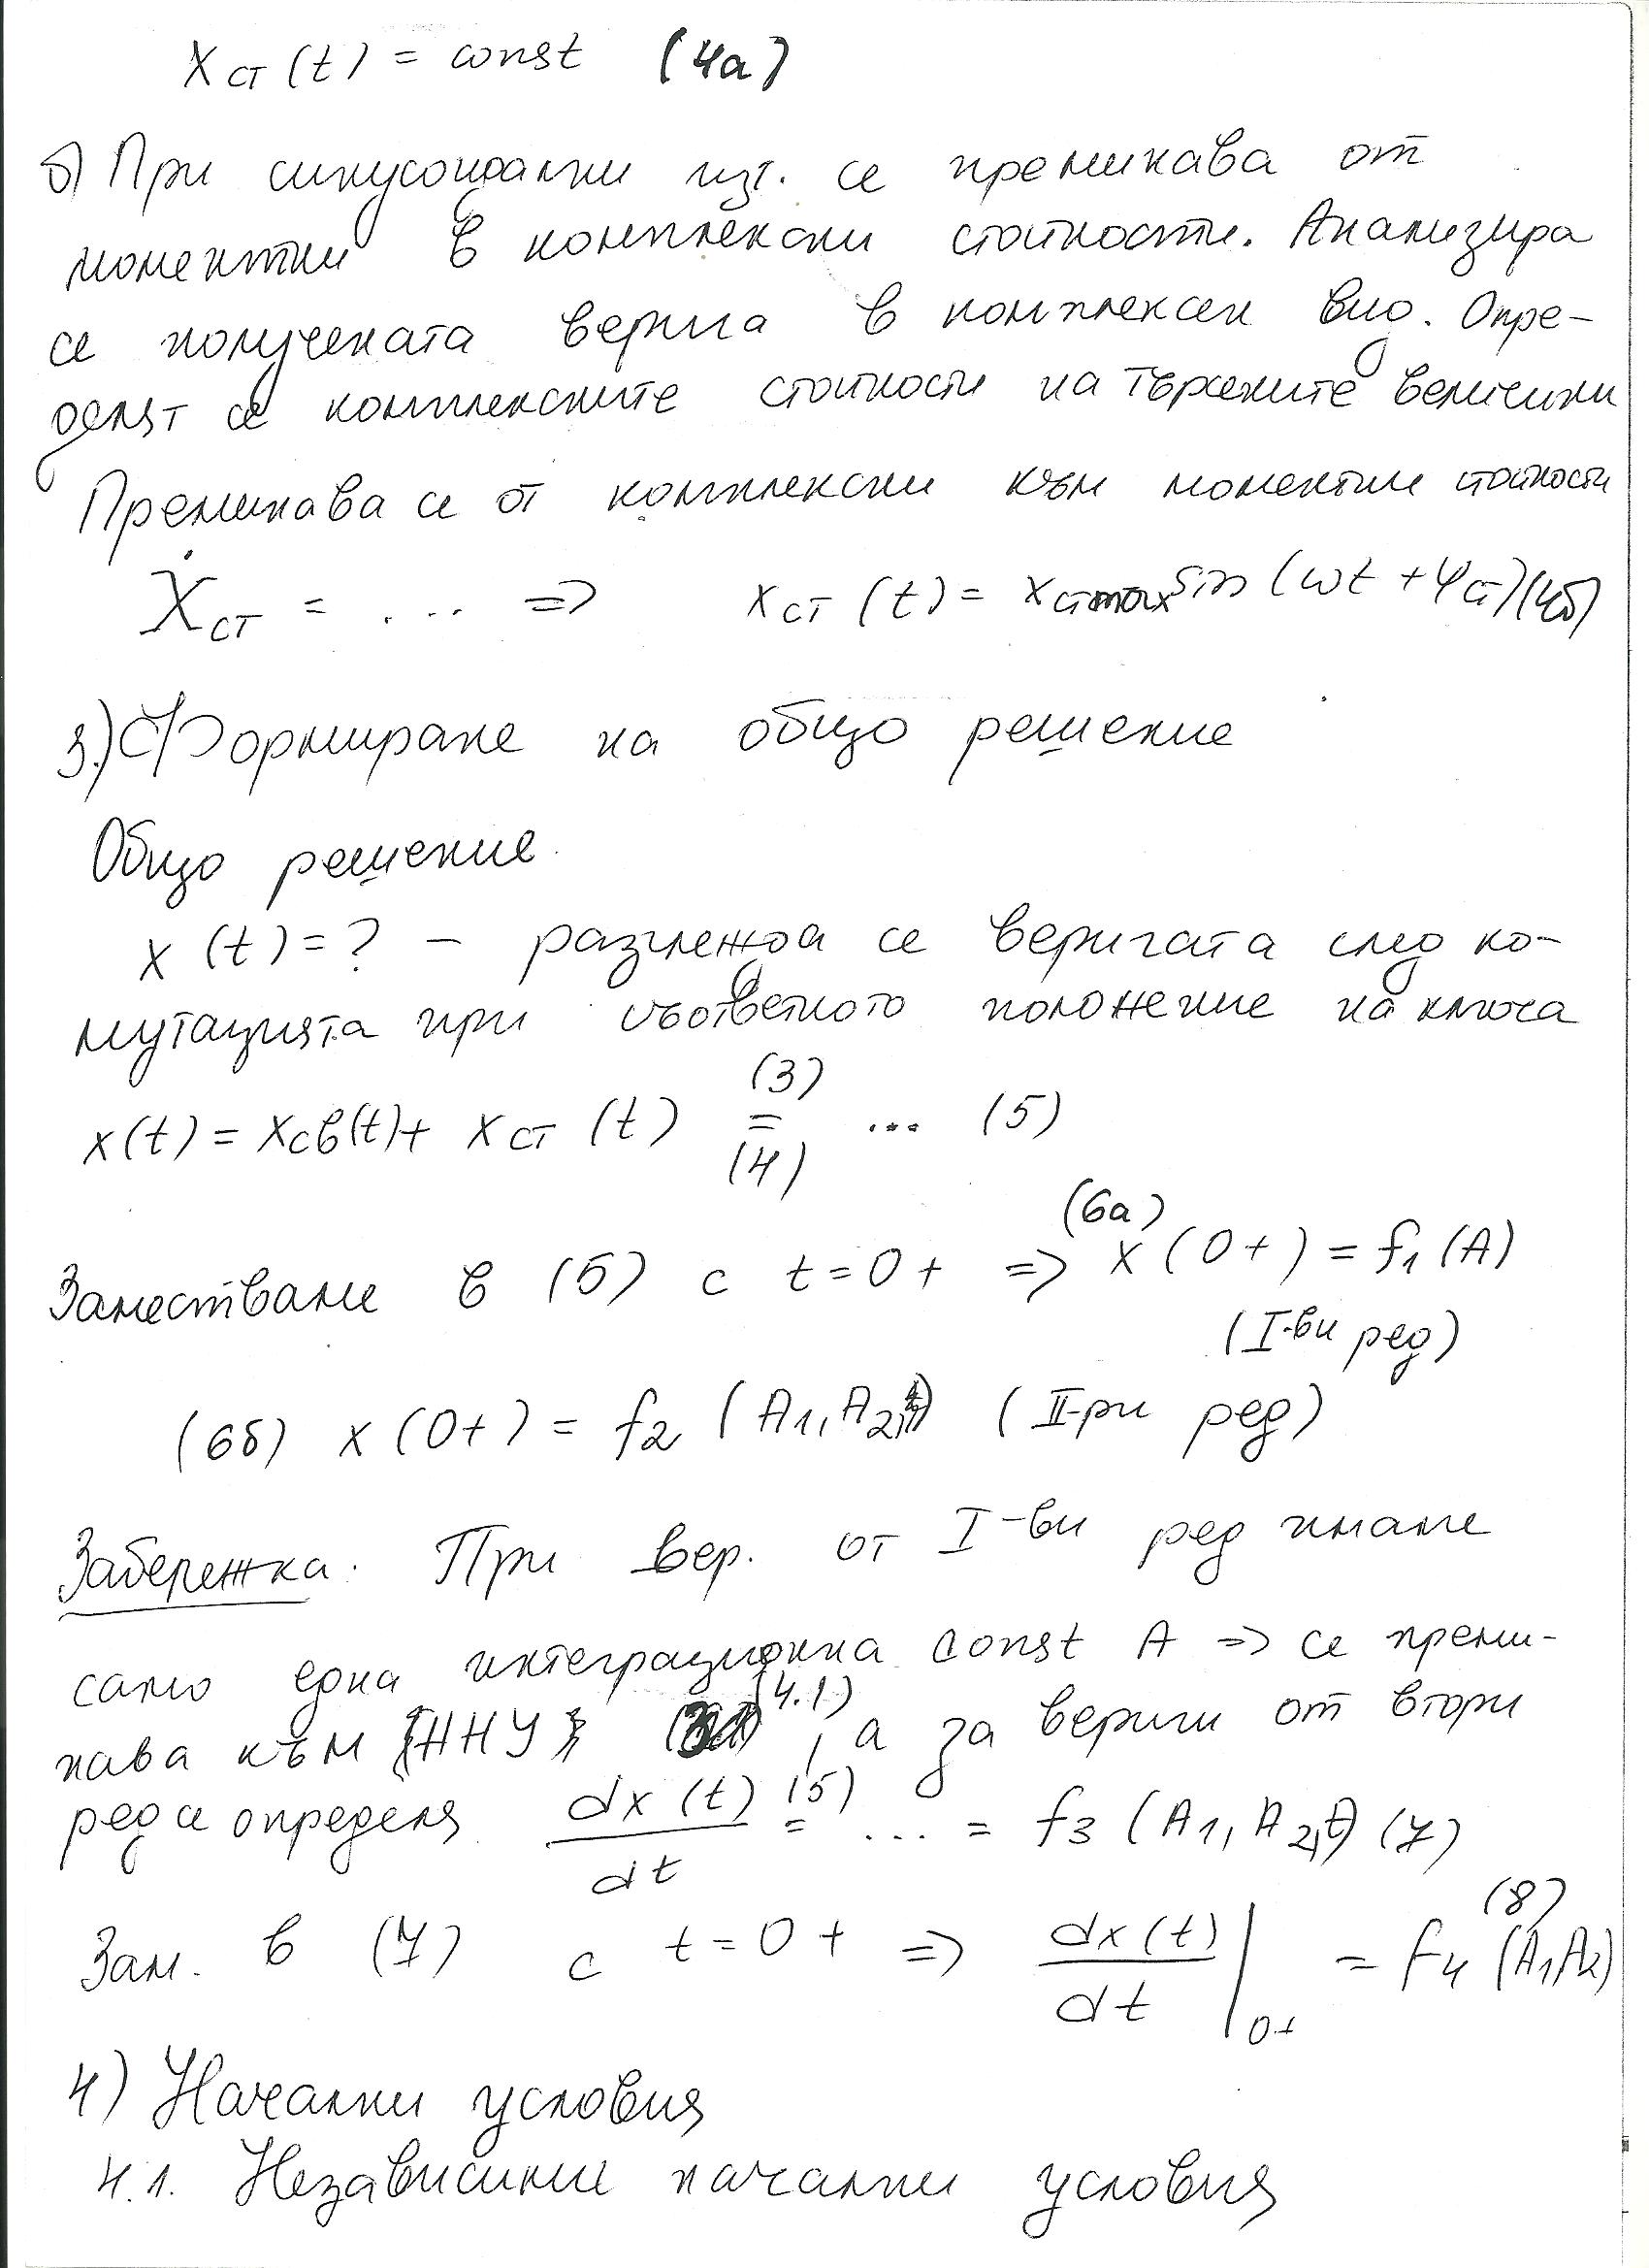 Xст(t) = const (4а)
б) При синусоидални изт. се преминава от
моментни в комплексни стойности. Анализира
се получената верига в комплексен вид. Опре-
делят се комплексните стойности на търсените величини
Преминава се от комплексни към моментни стойности
Ẋст = ... => xст(t) = xстmax sin(ωt + φст) (4б)
3.) Формиране на общо решение
Общо решение.
x(t) = ? – разглежда се веригата след ко-
мутацията при съответното положение на ключа
(3)
x(t) = xсв(t) + xст(t) = ... (5)
(4)
(6а)
Заместваме в (5) с t = 0+ => x(0+) = f1(A)
(I-ви ред)
(6б) x(0+) = f2(A1, A2) (II-ри ред)
Забележка. При вер. от I-ви ред имаме
само една интеграционна const A => се преми-
нава към {ННУ} (4.1), а за вериги от втори
ред се определя dx(t)/dt (5)= ... = f3(A1, A2, t) (7)
Зам. в (7) с t = 0+ => dx(t)/dt |0+ = f4(A1, A2) (8)
4) Начални условия
4.1. Независими начални условия